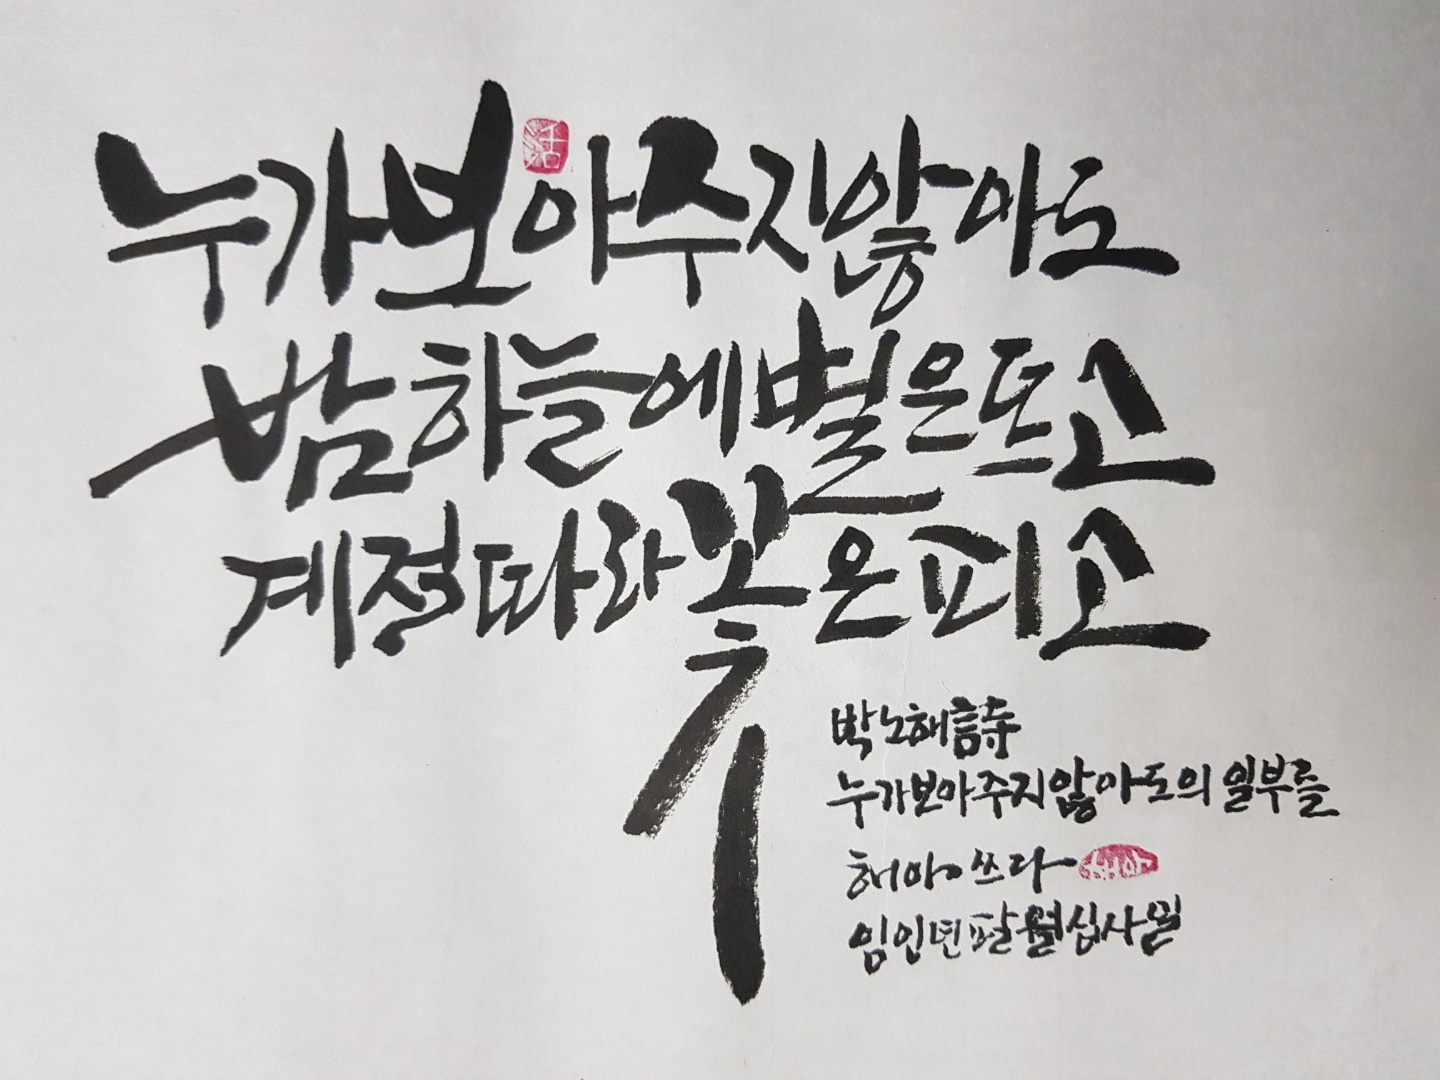 누가 보아주지 않아도
밤하늘에 별은 뜨고
계절따라 꽃은 피고
박노해 詩
누가 보아주지 않아도의 일부를
해아 쓰다
임인년 팔월 십사일